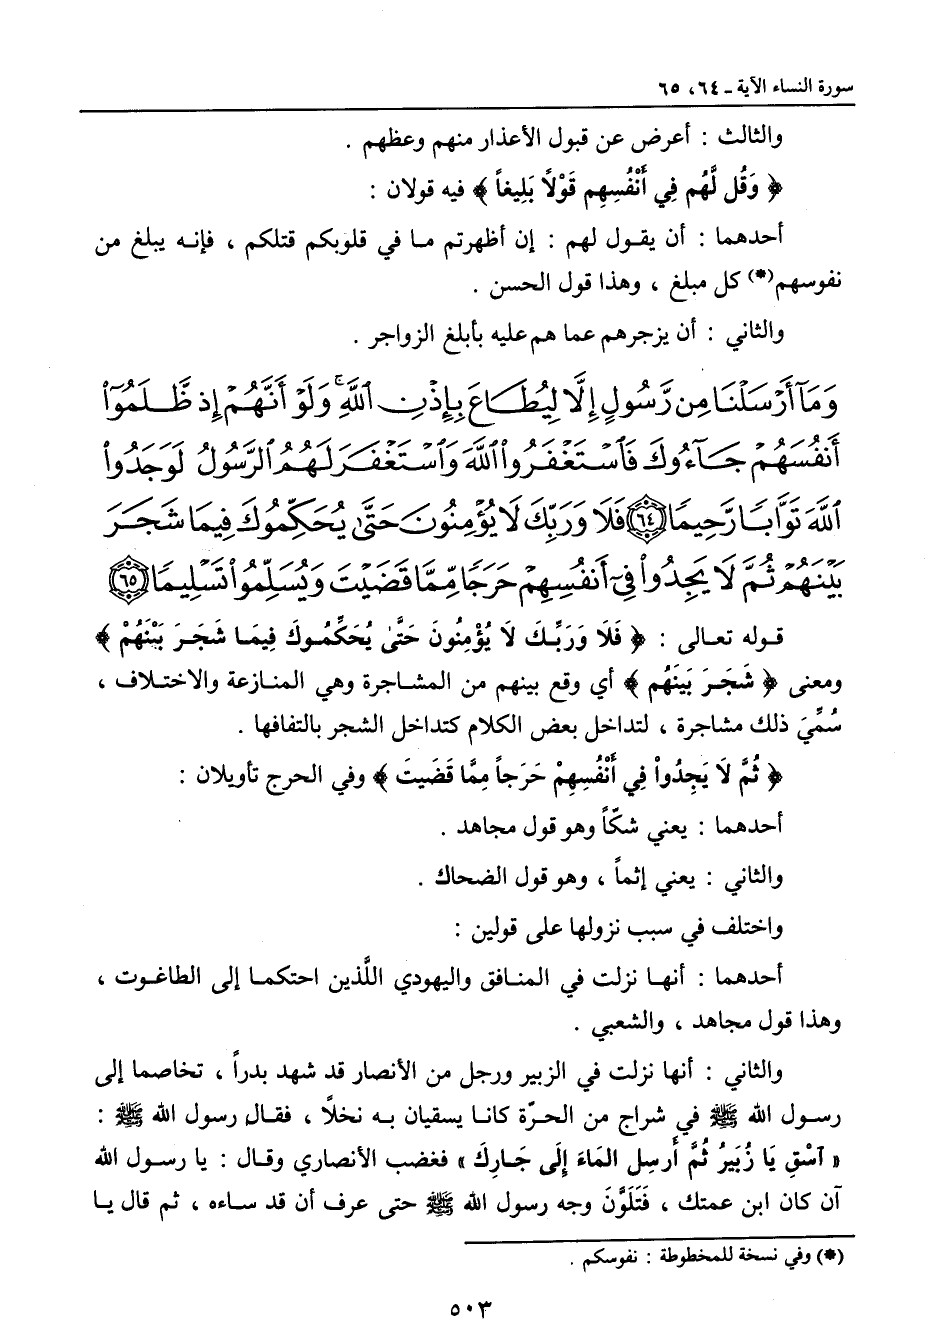 سورة النساء الآية ـ ٦٤، ٦٥
والثالث : أعرض عن قبول الأعذار منهم وعظهم .
﴿ وَقُل لَّهُم فِي أَنْفُسِهِم قَوْلاً بَلِيغاً ﴾ فيه قولان :
أحدهما : أن يقـول لهم : إن أظهرتم مـا في قلوبكم قتلكم ، فإنـه يبلغ من
نفوسهم(*) كل مبلغ ، وهذا قول الحسن .
والثاني : أن يزجرهم عما هم عليه بأبلغ الزواجر .
وَمَآ أَرْسَلْنَا مِن رَّسُولٍ إِلَّا لِيُطَاعَ بِإِذْنِ ٱللَّهِ ۚ وَلَوْ أَنَّهُمْ إِذ ظَّلَمُوٓا۟
أَنفُسَهُمْ جَآءُوكَ فَٱسْتَغْفَرُوا۟ ٱللَّهَ وَٱسْتَغْفَرَ لَهُمُ ٱلرَّسُولُ لَوَجَدُوا۟
ٱللَّهَ تَوَّابًا رَّحِيمًا ٦٤ فَلَا وَرَبِّكَ لَا يُؤْمِنُونَ حَتَّىٰ يُحَكِّمُوكَ فِيمَا شَجَرَ
بَيْنَهُمْ ثُمَّ لَا يَجِدُوا۟ فِىٓ أَنفُسِهِمْ حَرَجًا مِّمَّا قَضَيْتَ وَيُسَلِّمُوا۟ تَسْلِيمًا ٦٥
قـوله تعـالى : ﴿ فَلَا وَرَبِّـكَ لَا يُؤْمِنُونَ حَتَّىٰ يُحَكِّمُـوكَ فِيمَـا شَجَـرَ بَيْنَهُمْ ﴾
ومعنى ﴿ شَجَـرَ بَينَهُم ﴾ أي وقع بينهم من المشـاجرة وهي المنـازعة والاختـلاف ،
سُمِّيَ ذلك مشاجرة ، لتداخل بعض الكلام كتداخل الشجر بالتفافها .
﴿ ثُمَّ لَا يَجِدُواْ فِي أَنْفُسِهِمْ حَرَجاً مِمَّا قَضَيتَ ﴾ وفي الحرج تأويلان :
أحدهما : يعني شكّاً وهو قول مجاهد .
والثاني : يعني إثماً ، وهو قول الضحاك .
واختلف في سبب نزولها على قولين :
أحدهما : أنهـا نزلت في المنـافق واليهودي اللَّذين احتكمـا إلى الطاغـوت ،
وهذا قول مجاهد ، والشعبي .
والثاني : أنها نزلت في الزبير ورجل من الأنصار قد شهد بدراً ، تخاصما إلى
رسـول الله ﷺ في شراج من الحرّة كانـا يسقيان بـه نخلًا ، فقـال رسول الله ﷺ :
« آسْقِ يَا زُبَيرُ ثُمَّ أَرسِل المَاءَ إِلَى جَارِكَ » فغضب الأنصاري وقال : يا رسـول الله
آن كان ابن عمتك ، فَتَلَوَّنَ وجه رسول الله ﷺ حتى عرف أن قد ساءه ، ثم قال يـا
(*) وفي نسخة للمخطوطة : نفوسكم .
٥٠٣